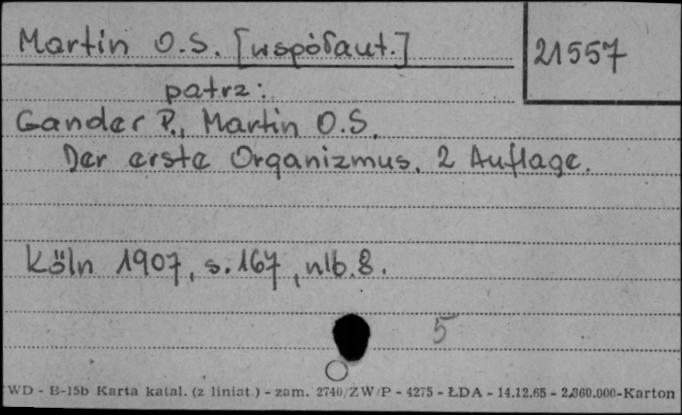 Martin O.S. [współaut.]
21557
patrz:
Gander P., Martin O.S.
Der erste Organizmus. 2 Auflage.
Köln 1907, s. 167, nlb. 8.
5
WD - B-15b Karta katal. (z liniat.) - zam. 2740/ZW/P - 4275 - ŁDA - 14.12.65 - 2.360.000-Karton